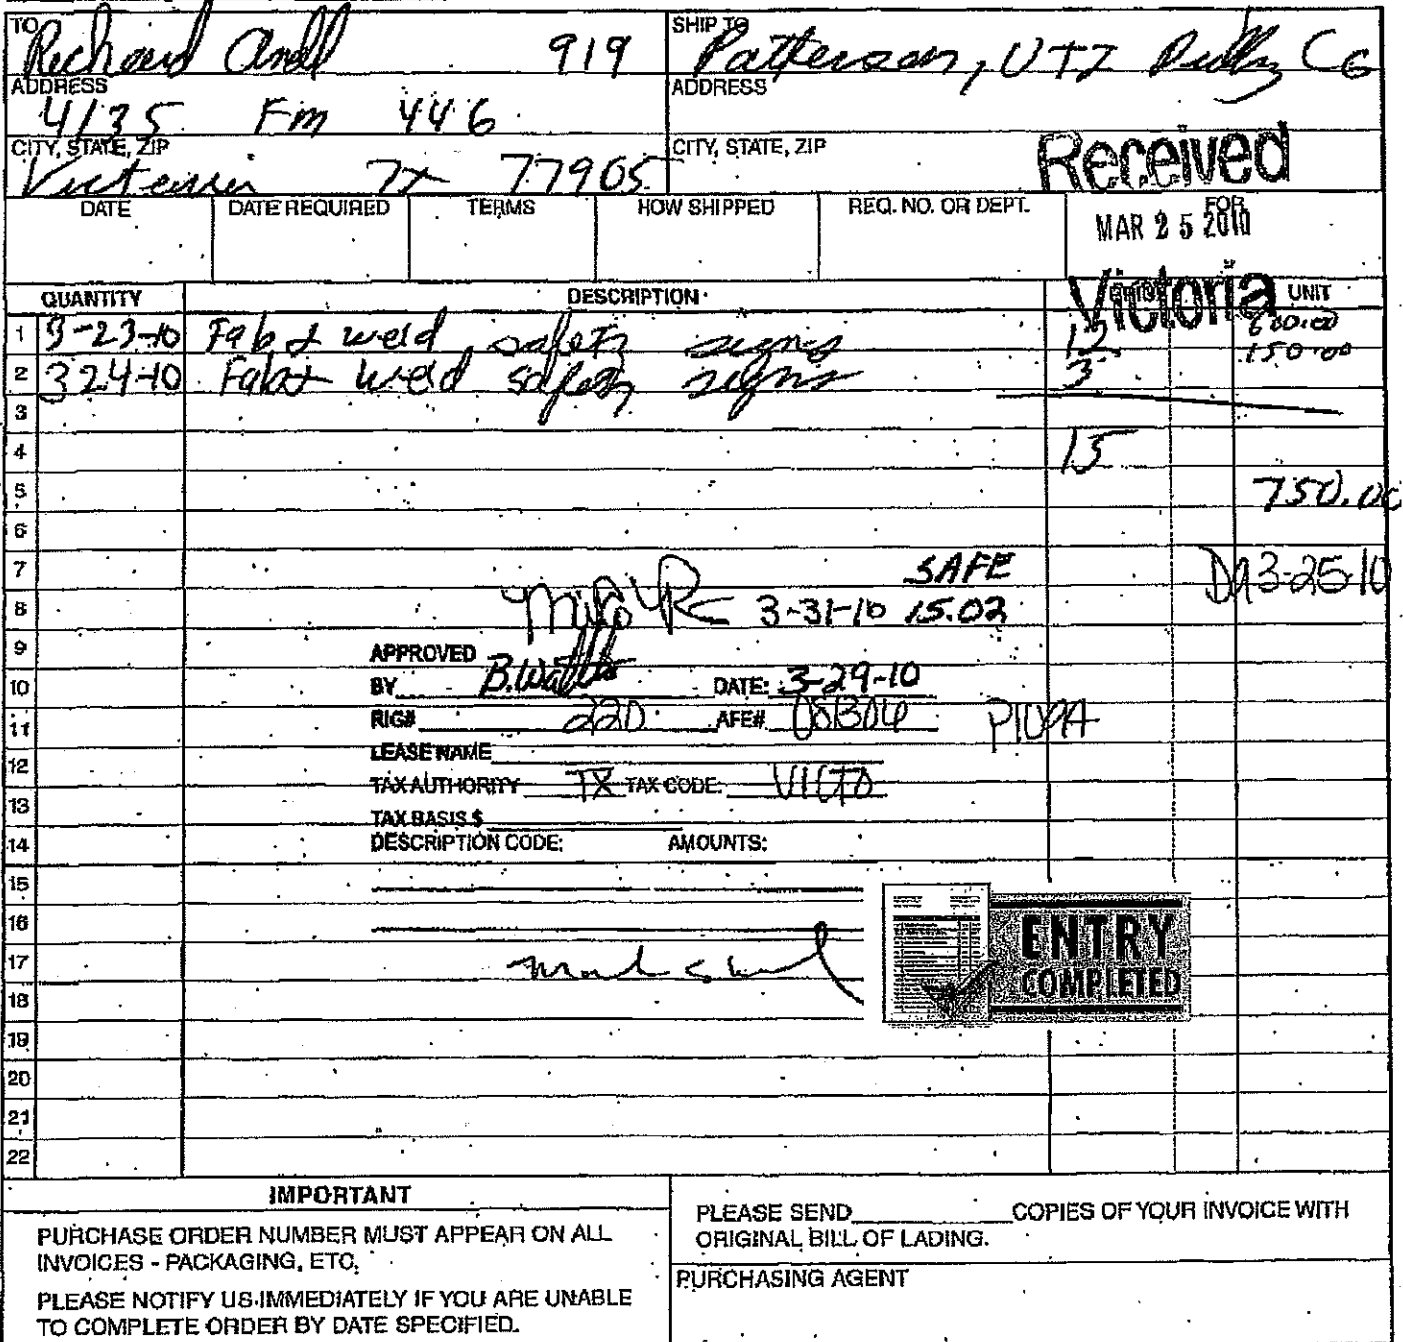 TO SHIP TO
Richard 919 Patterson, UTI
ADDRESS ADDRESS
4135 Fm 446
CITY, STATE, ZIP CITY, STATE, ZIP
Victoria Tx 77905
Received
DATE DATE REQUIRED TERMS HOW SHIPPED REQ. NO. OR DEPT. FOR
MAR 25 2010
Victoria
QUANTITY DESCRIPTION UNIT
1 3-23-10 Fab & weld safety signs 12 600.00
2 3-24-10 Fab & weld safety signs 3 150.00
3
4 15
5 750.00
6
7 SAFE 3-25-10
8 3-31-10 15.02
9 APPROVED
10 BY B. Watts DATE: 3-29-10
11 RIG# 220 AFE#
12 LEASE NAME
TAX AUTHORITY TX TAX CODE: VICTO
13
TAX BASIS $
14 DESCRIPTION CODE: AMOUNTS:
15
16
ENTRY
17
COMPLETED
18
19
20
21
22
IMPORTANT
PURCHASE ORDER NUMBER MUST APPEAR ON ALL
INVOICES - PACKAGING, ETC.
PLEASE NOTIFY US IMMEDIATELY IF YOU ARE UNABLE
TO COMPLETE ORDER BY DATE SPECIFIED.
PLEASE SEND COPIES OF YOUR INVOICE WITH
ORIGINAL BILL OF LADING.
PURCHASING AGENT